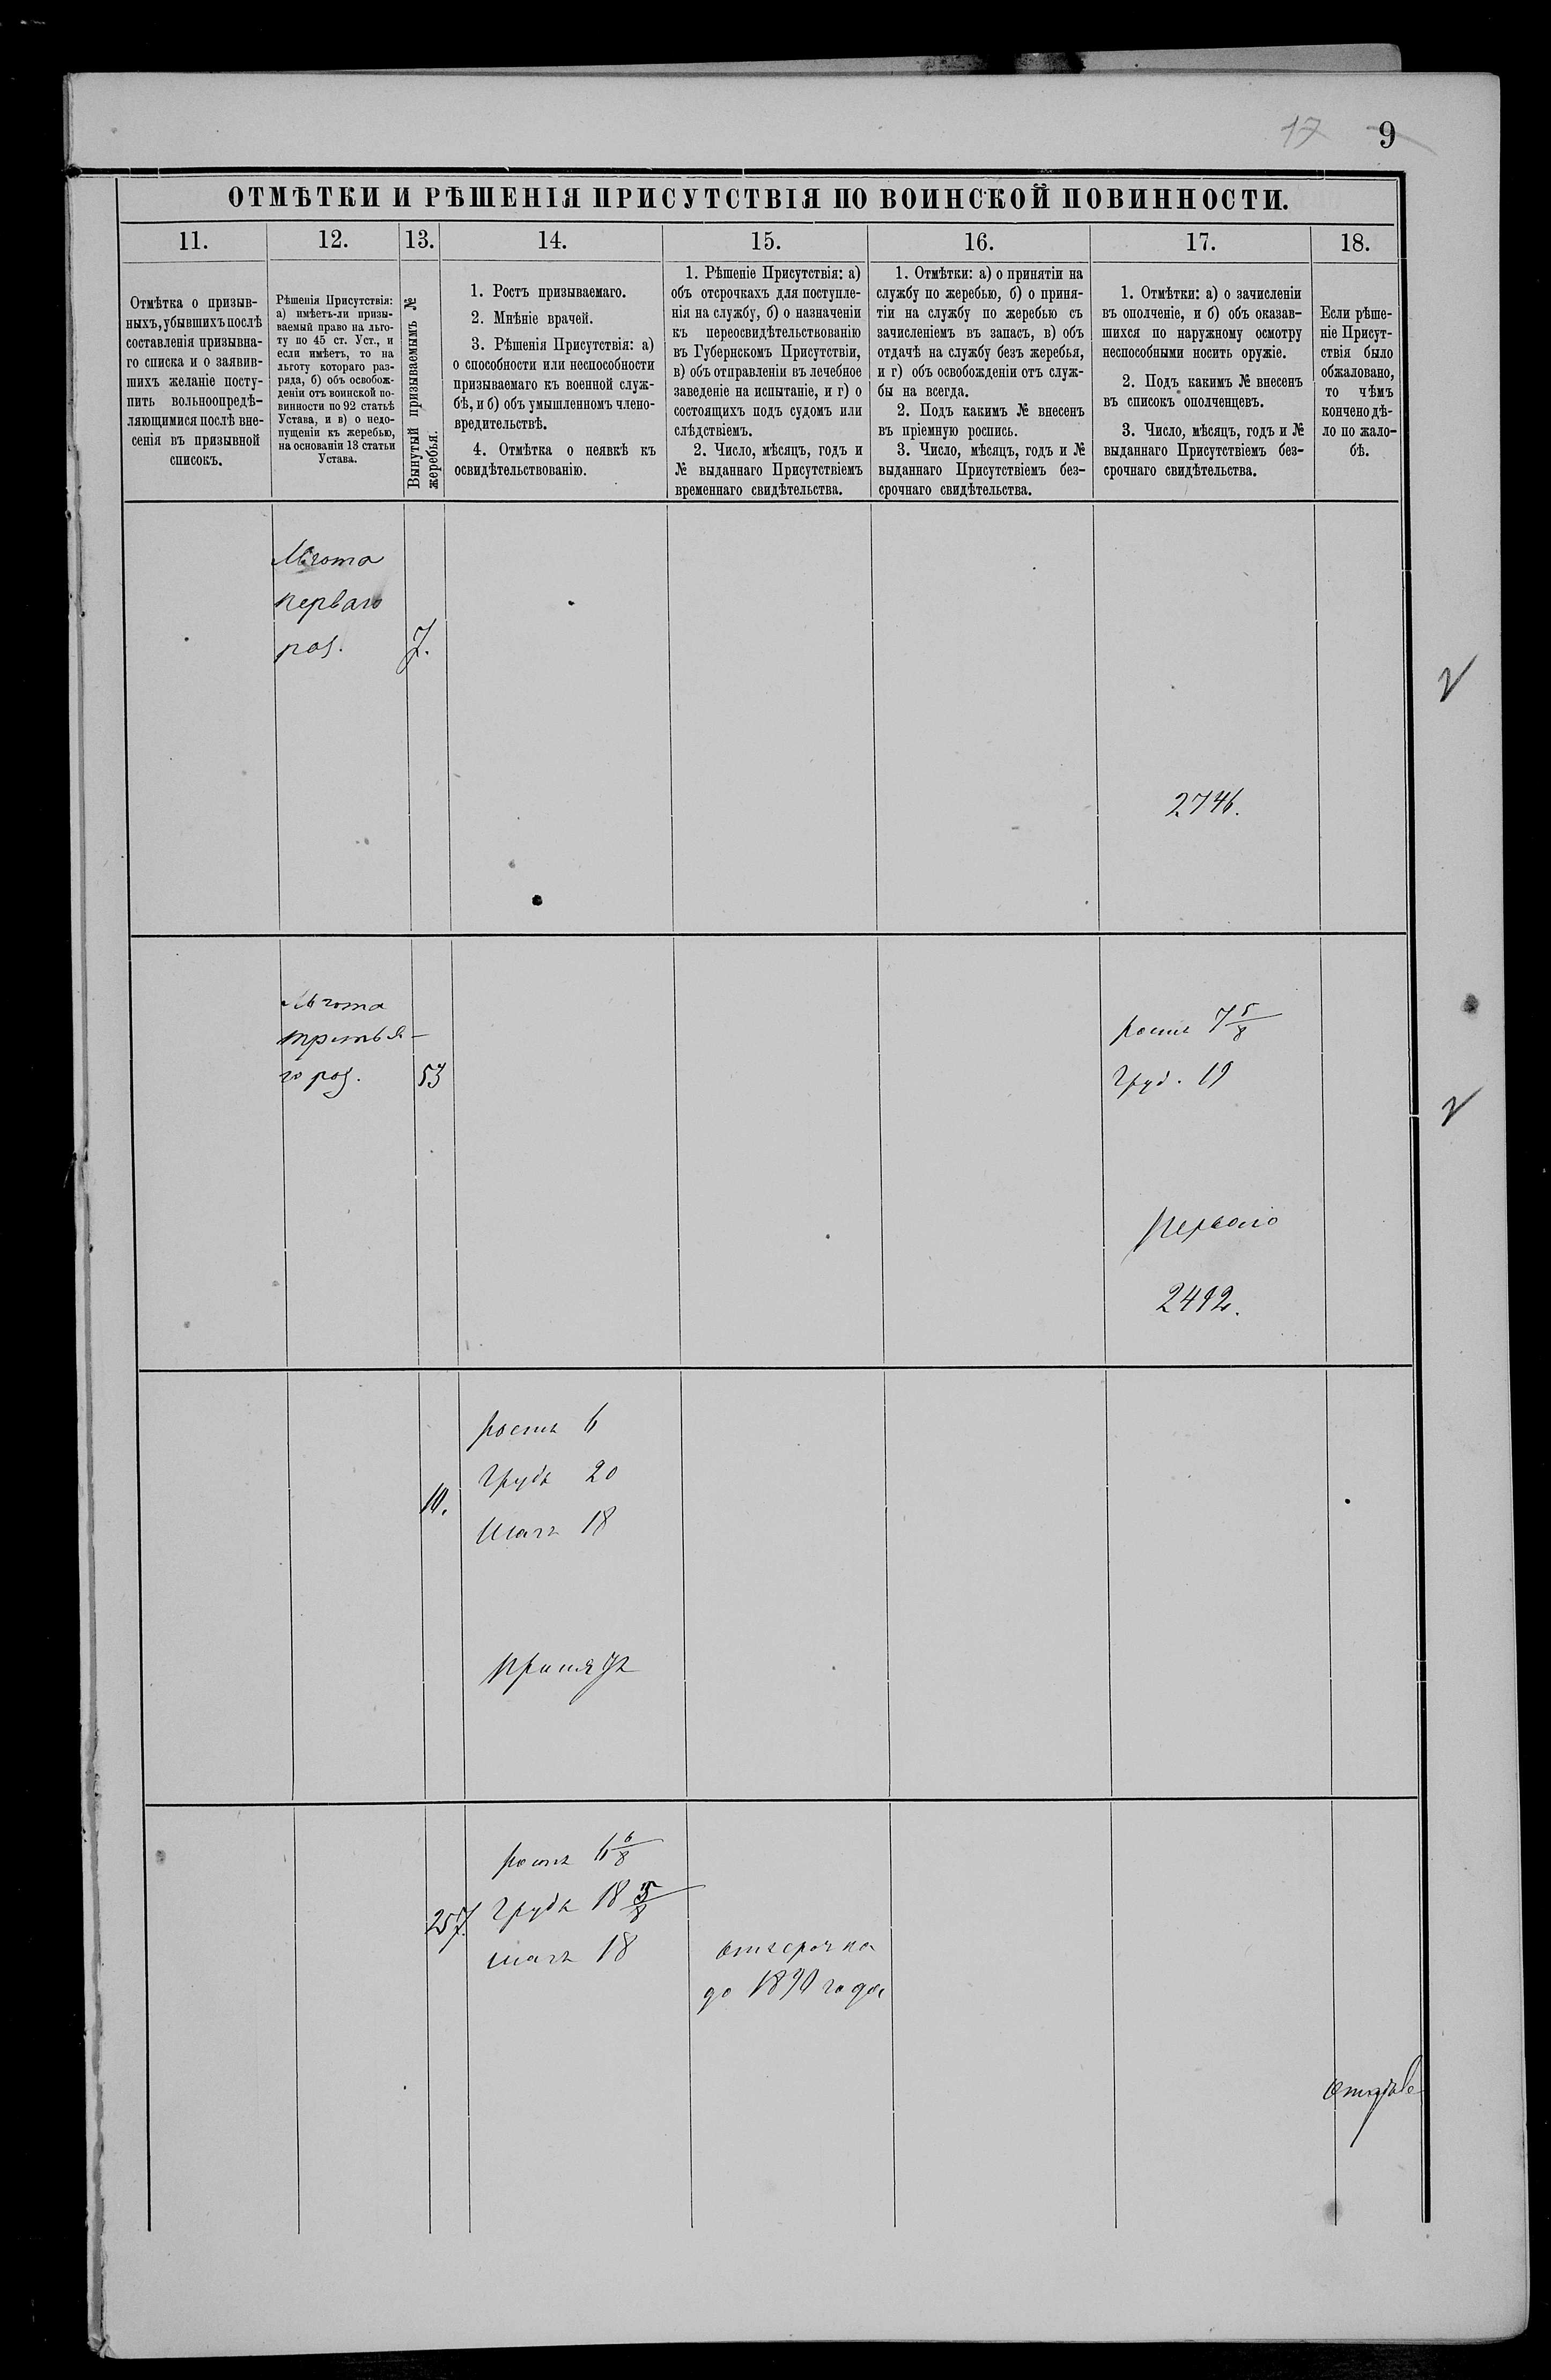 17 9
ОТМѢТКИ И РѢШЕНІЯ ПРИСУТСТВІЯ ПО ВОИНСКОЙ ПОВИННОСТИ.
11.
12.
13.
14.
15.
16.
17.
18.
Отмѣтка о призыв-
ныхъ, убывшихъ послѣ
составленія призывна-
го списка и о заявив-
шихъ желаніе посту-
пить вольноопредѣ-
ляющимися послѣ вне-
сенія въ призывной
списокъ.
Рѣшенія Присутствія:
а) имѣетъ-ли призы-
ваемый право на льго-
ту по 45 ст. Уст., и
если имѣетъ, то на
льготу котораго раз-
ряда, б) объ освобож-
деніи отъ воинской по-
винности по 92 статьѣ
Устава, и в) о недо-
пущеніи къ жеребью,
на основаніи 13 статьи
Устава.
Вынутый призываемымъ №
жеребья.
1. Ростъ призываемаго.
2. Мнѣніе врачей.
3. Рѣшенія Присутствія: а)
о способности или неспособности
призываемаго къ военной служ-
бѣ, и б) объ умышленномъ члено-
вредительствѣ.
4. Отмѣтка о неявкѣ къ
освидѣтельствованію.
1. Рѣшеніе Присутствія: а)
объ отсрочкахъ для поступле-
нія на службу, б) о назначеніи
къ переосвидѣтельствованію
въ Губернскомъ Присутствіи,
в) объ отправленіи въ лечебное
заведеніе на испытаніе, и г) о
состоящихъ подъ судомъ или
слѣдствіемъ.
2. Число, мѣсяцъ, годъ и
№ выданнаго Присутствіемъ
временнаго свидѣтельства.
1. Отмѣтки: а) о принятіи на
службу по жеребью, б) о приня-
тіи на службу по жеребью съ
зачисленіемъ въ запасъ, в) объ
отдачѣ на службу безъ жеребья,
и г) объ освобожденіи отъ служ-
бы на всегда.
2. Подъ какимъ № внесенъ
въ пріемную роспись.
3. Число, мѣсяцъ, годъ и №
выданнаго Присутствіемъ без-
срочнаго свидѣтельства.
1. Отмѣтки: а) о зачисленіи
въ ополченіе, и б) объ оказав-
шихся по наружному осмотру
неспособными носить оружіе.
2. Подъ какимъ № внесенъ
въ списокъ ополченцевъ.
3. Число, мѣсяцъ, годъ и №
выданнаго Присутствіемъ без-
срочнаго свидѣтельства.
Если рѣше-
ніе Присут-
ствія было
обжаловано,
то чѣмъ
кончено дѣ-
ло по жало-
бѣ.
Льгота
перваго
раз.
7.
2746.
Льгота
третья-
го раз.
53
ростъ 7 5/8
Груд. 19
перваго
2492.
10.
ростъ 6
Грудь 20
шагъ 18
принятъ
257.
ростъ 6 6/8
Грудь 18 3/8
шагъ 18
отсрочка
до 1890 года